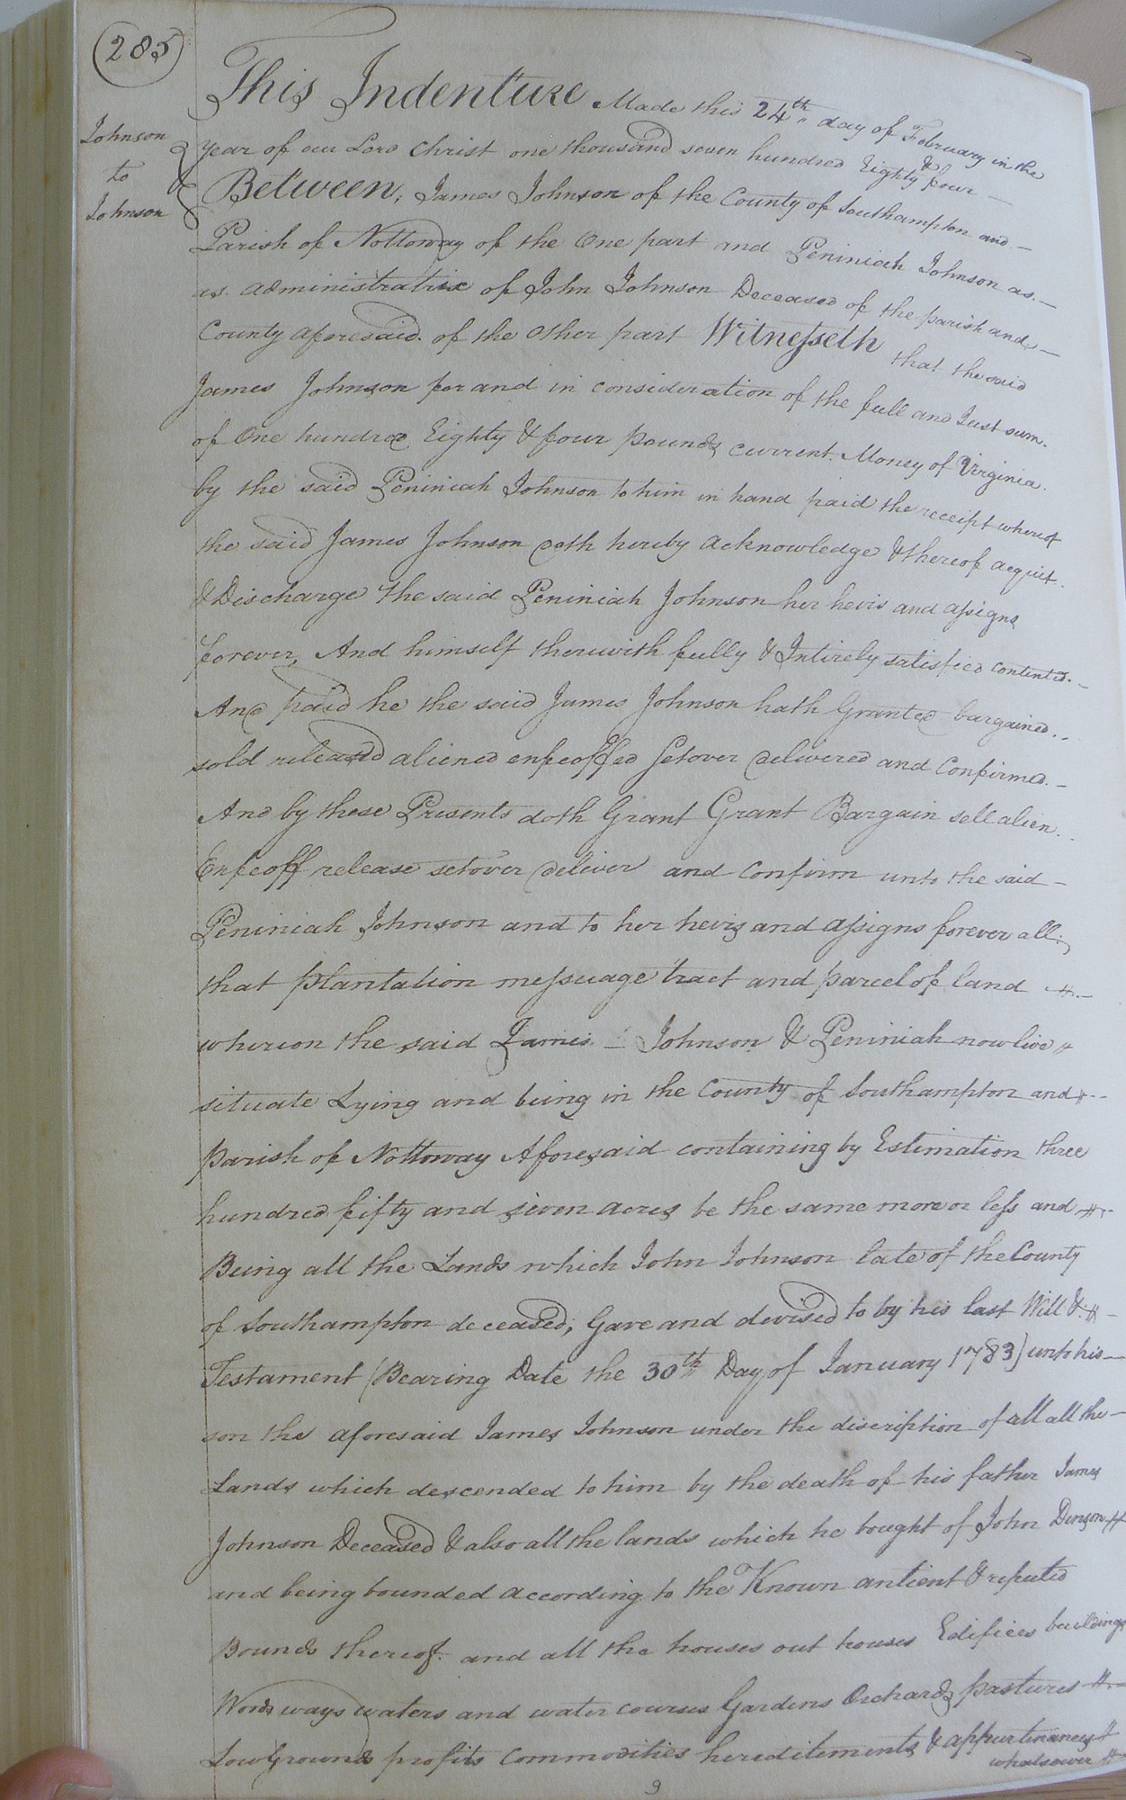 285
Johnson
to
Johnson
This Indenture Made this 24th day of February in the
year of our Lord Christ one thousand seven hundred Eighty & four
Between, James Johnson of the County of Southampton and
Parish of Nottoway of the One part and Peniniah Johnson as
as administratrix of John Johnson Deceased of the parish and
County aforesaid of the Other part Witnesseth that the said
James Johnson for and in consideration of the full and Just sum
of One hundred Eighty & four pounds current Money of Virginia
by the said Peniniah Johnson to him in hand paid the receipt whereof
the said James Johnson doth hereby acknowledge & thereof acquit
& Discharge the said Peniniah Johnson her heirs and assigns
forever, And himself therewith fully & Intirely satisfied contented
And paid he the said James Johnson hath Granted bargained
sold released aliened enfeoffed setover delivered and Confirmed
And by these Presents doth Grant Grant Bargain sell alien
Enfeoff release setover deliver and confirm unto the said
Peniniah Johnson and to her heirs and assigns forever all
that plantation messuage tract and parcel of land
whereon the said James Johnson & Peniniah now live
situate Lying and being in the County of Southampton and
parish of Nottoway Aforesaid containing by Estimation three
hundred fifty and seven acres be the same more or less and
Being all the Lands which John Johnson late of the County
of Southampton deceased, Gave and devised to by his last Will &
Testament (Bearing Date the 30th Day of January 1783) unto his
son the aforesaid James Johnson under the discription of all all the
Lands which descended to him by the death of his father James
Johnson Deceased & also all the lands which he bought of John Denson
and being bounded according to the Known antient & reputed
Bounds thereof. and all the houses out houses Edifices buildings
Woods ways waters and water courses Gardens Orchards pastures
Low Grounds profits commodities hereditements & appurtinances
whatsoever